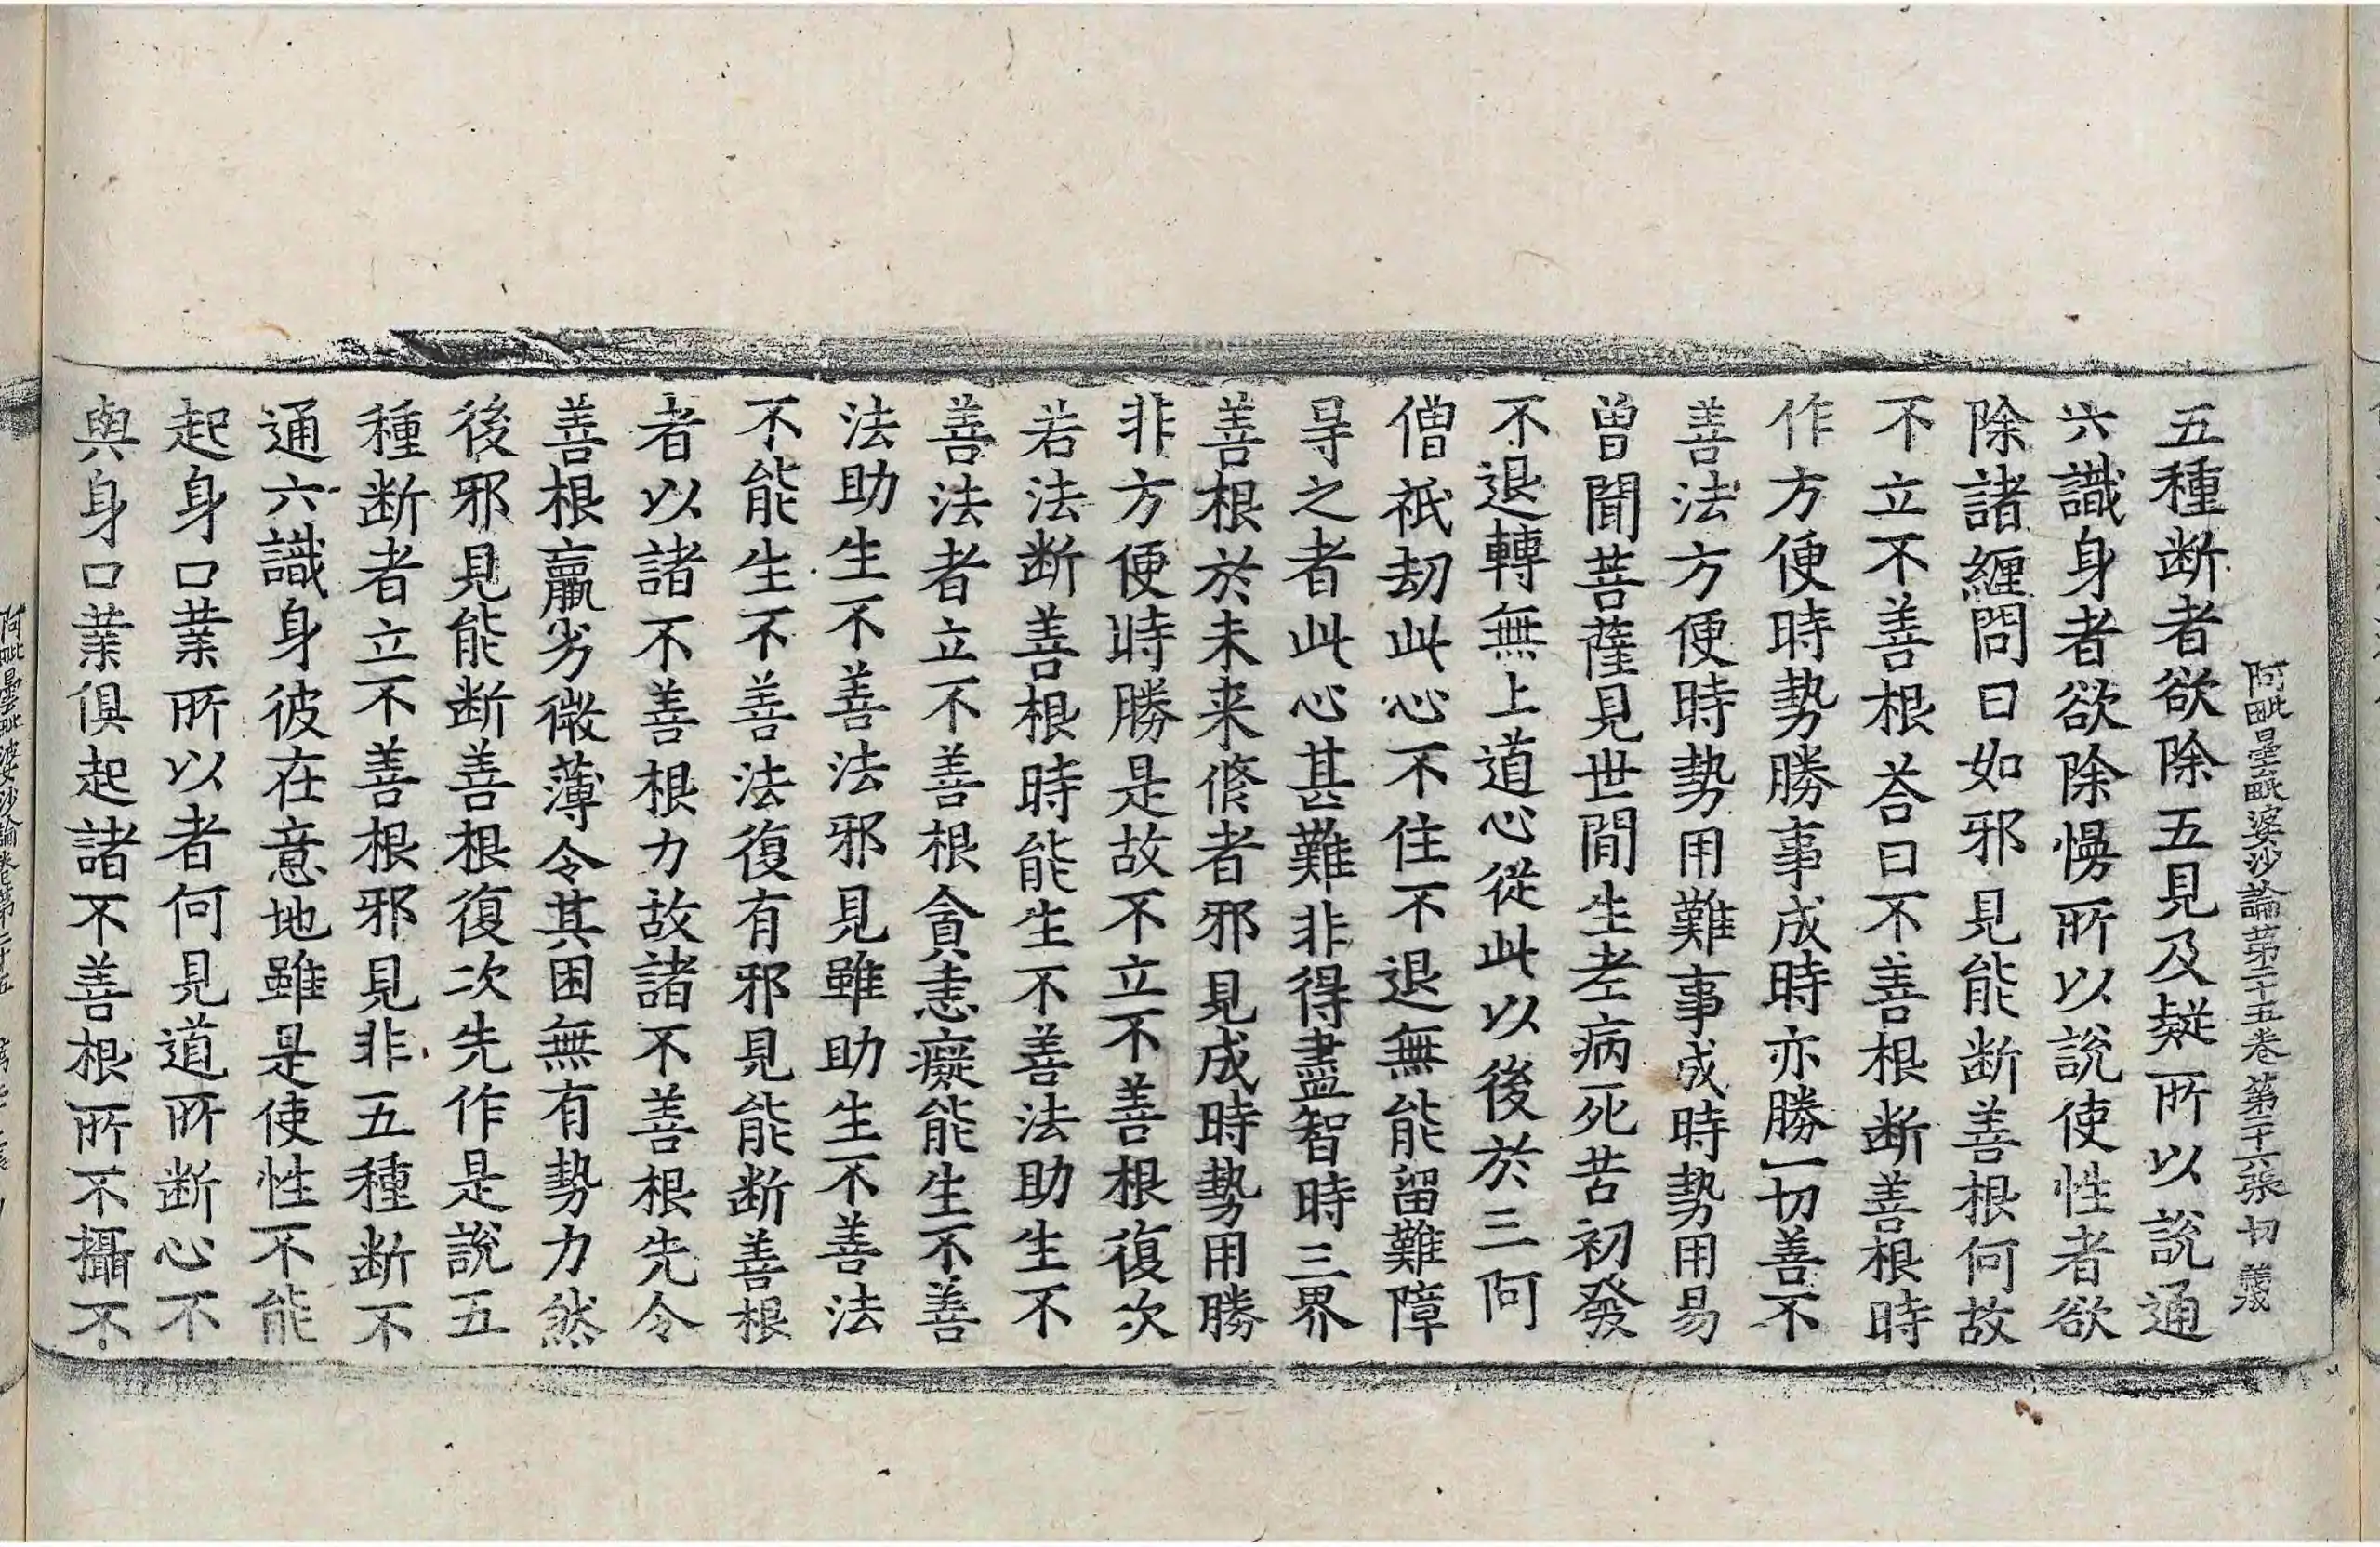 阿毗曇毗婆沙論第二十五卷 第二十六張 切 義
五種断者欲除五見及疑所以說通
六識身者欲除慢所以說使性者欲
除諸纏問曰如邪見能断善根何故
不立不善根荅曰不善根断善根時
作方便時勢勝事成時亦勝一切善不
善法方便時勢用難事成時勢用易
曾聞菩薩見世間生老病死苦初發
不退轉無上道心從此以後於三阿
僧祇劫此心不住不退無能留難障
㝵之者此心甚難非得盡智時三界
善根於未来修者邪見成時勢用勝
非方便時勝是故不立不善根復次
若法断善根時能生不善法助生不
善法者立不善根貪恚癡能生不善
法助生不善法邪見雖助生不善法
不能生不善法復有邪見能断善根
者以諸不善根力故諸不善根先令
善根羸劣微薄令其困無有勢力然
後邪見能断善根復次先作是說五
種断者立不善根邪見非五種断不
通六識身彼在意地雖是使性不能
起身口業所以者何見道所断心不
與身口業俱起諸不善根所不攝不